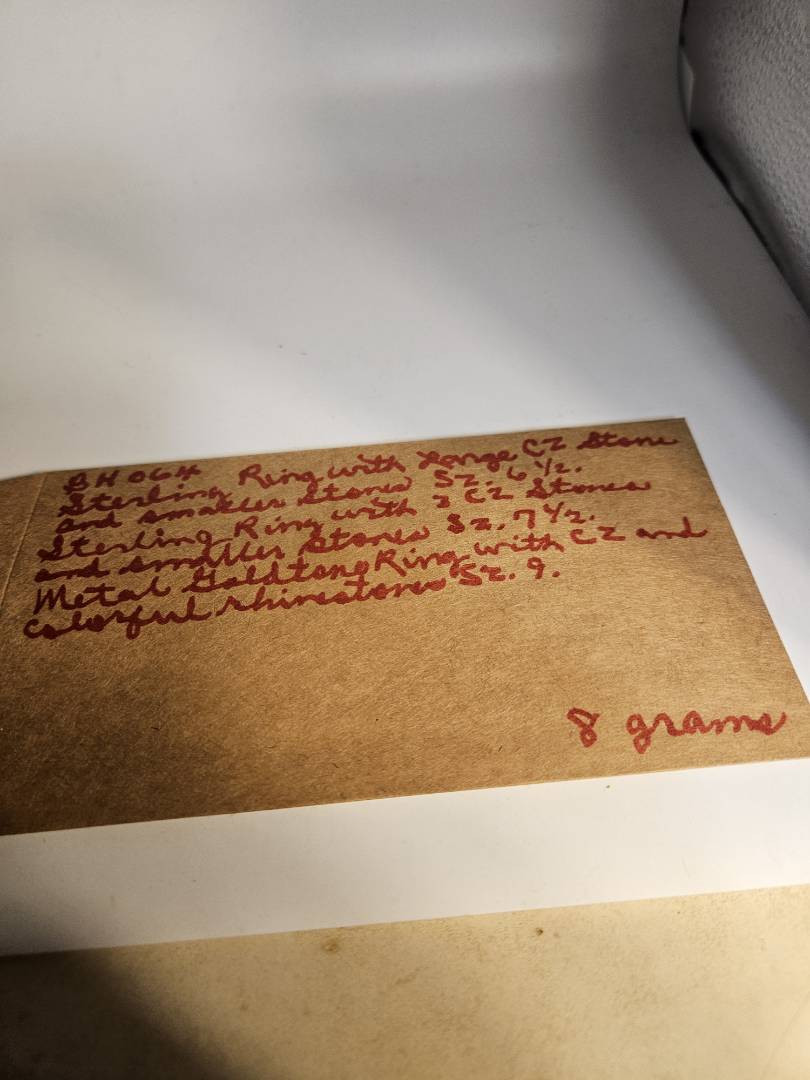 BH 064
Sterling Ring with Large CZ Stone
and smaller stones Sz. 6 1/2.
Sterling Ring with 2 CZ Stones
and smaller stones Sz. 7 1/2.
Metal Goldtone Ring with CZ and
colorful rhinestones Sz. 9.
8 grams